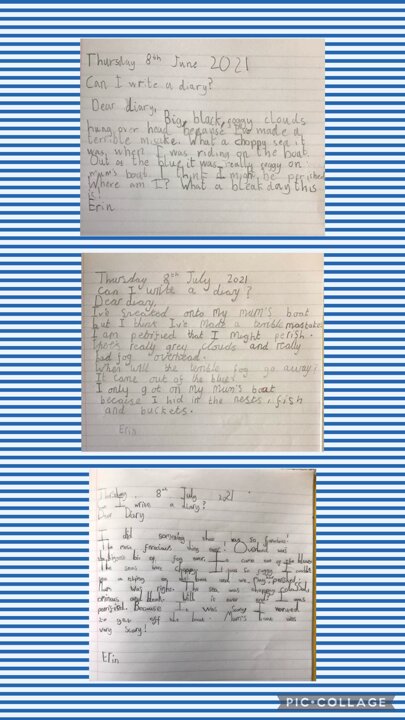 Thursday 8th June 2021
Can I write a diary?
Dear diary,
Big, black, foggy clouds
hung over head because I've made a
terrible misake. What a choppy sea it
was when I was riding on the boat.
Out of the blue it was really foggy on
mum's boat. I think I might be perished
Where am I? What a bleak day this
is!
Erin
Thursday 8th July 2021
Can I write a diary?
Dear diary,
I've sneaked onto my mum's boat
but I think I've made a terrible
I am petrified that I might perish.
really grey clouds and really
bad fog overhead.
When will the terrible fog go away?
It came out of the blue!
I only got on my mum's boat
because I hid in the fish
and buckets.
Erin
Thursday 8th July 2021
Can I write a diary?
Dear Diary
I did something that was so
The most ferocious thing ever! Overhead was
fog ever. It came out of the blue
The seas were choppy. I was so foggy I couldn't
see a thing on the boat and we
Mum was right. The sea was choppy
ominous, and bleak. Will it ever end? I was
petrified. Because I was scary I
to get off the boat. Mum's boat was
very scary!
Erin
PIC•COLLAGE